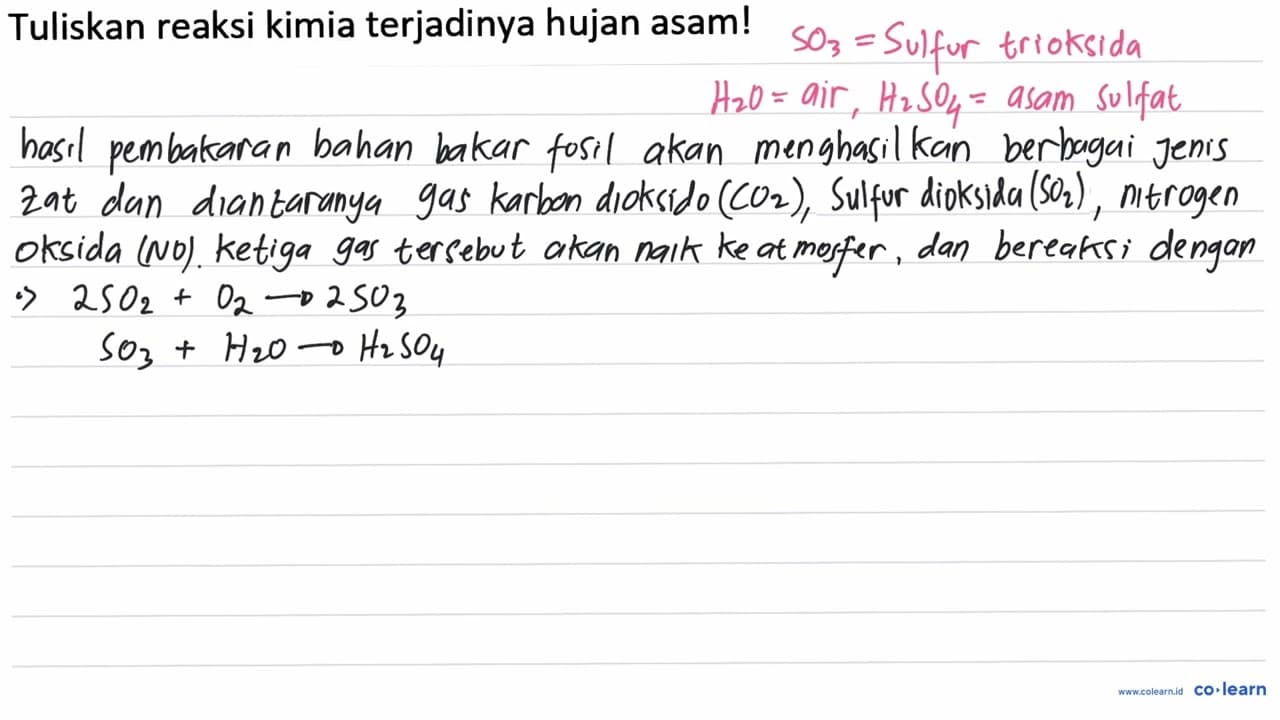 Tuliskan reaksi kimia terjadinya hujan asam!
SO₃ = Sulfur trioksida
H₂O = air, H₂SO₄ = asam sulfat
hasil pembakaran bahan bakar fosil akan menghasilkan berbagai jenis
zat dan diantaranya gas karbon dioksido (CO₂), Sulfur dioksida (SO₂), nitrogen
oksida (NO). ketiga gas tersebut akan naik ke atmosfer, dan bereaksi dengan
•> 2SO₂ + O₂ → 2SO₃
SO₃ + H₂O → H₂SO₄
www.colearn.id co•learn